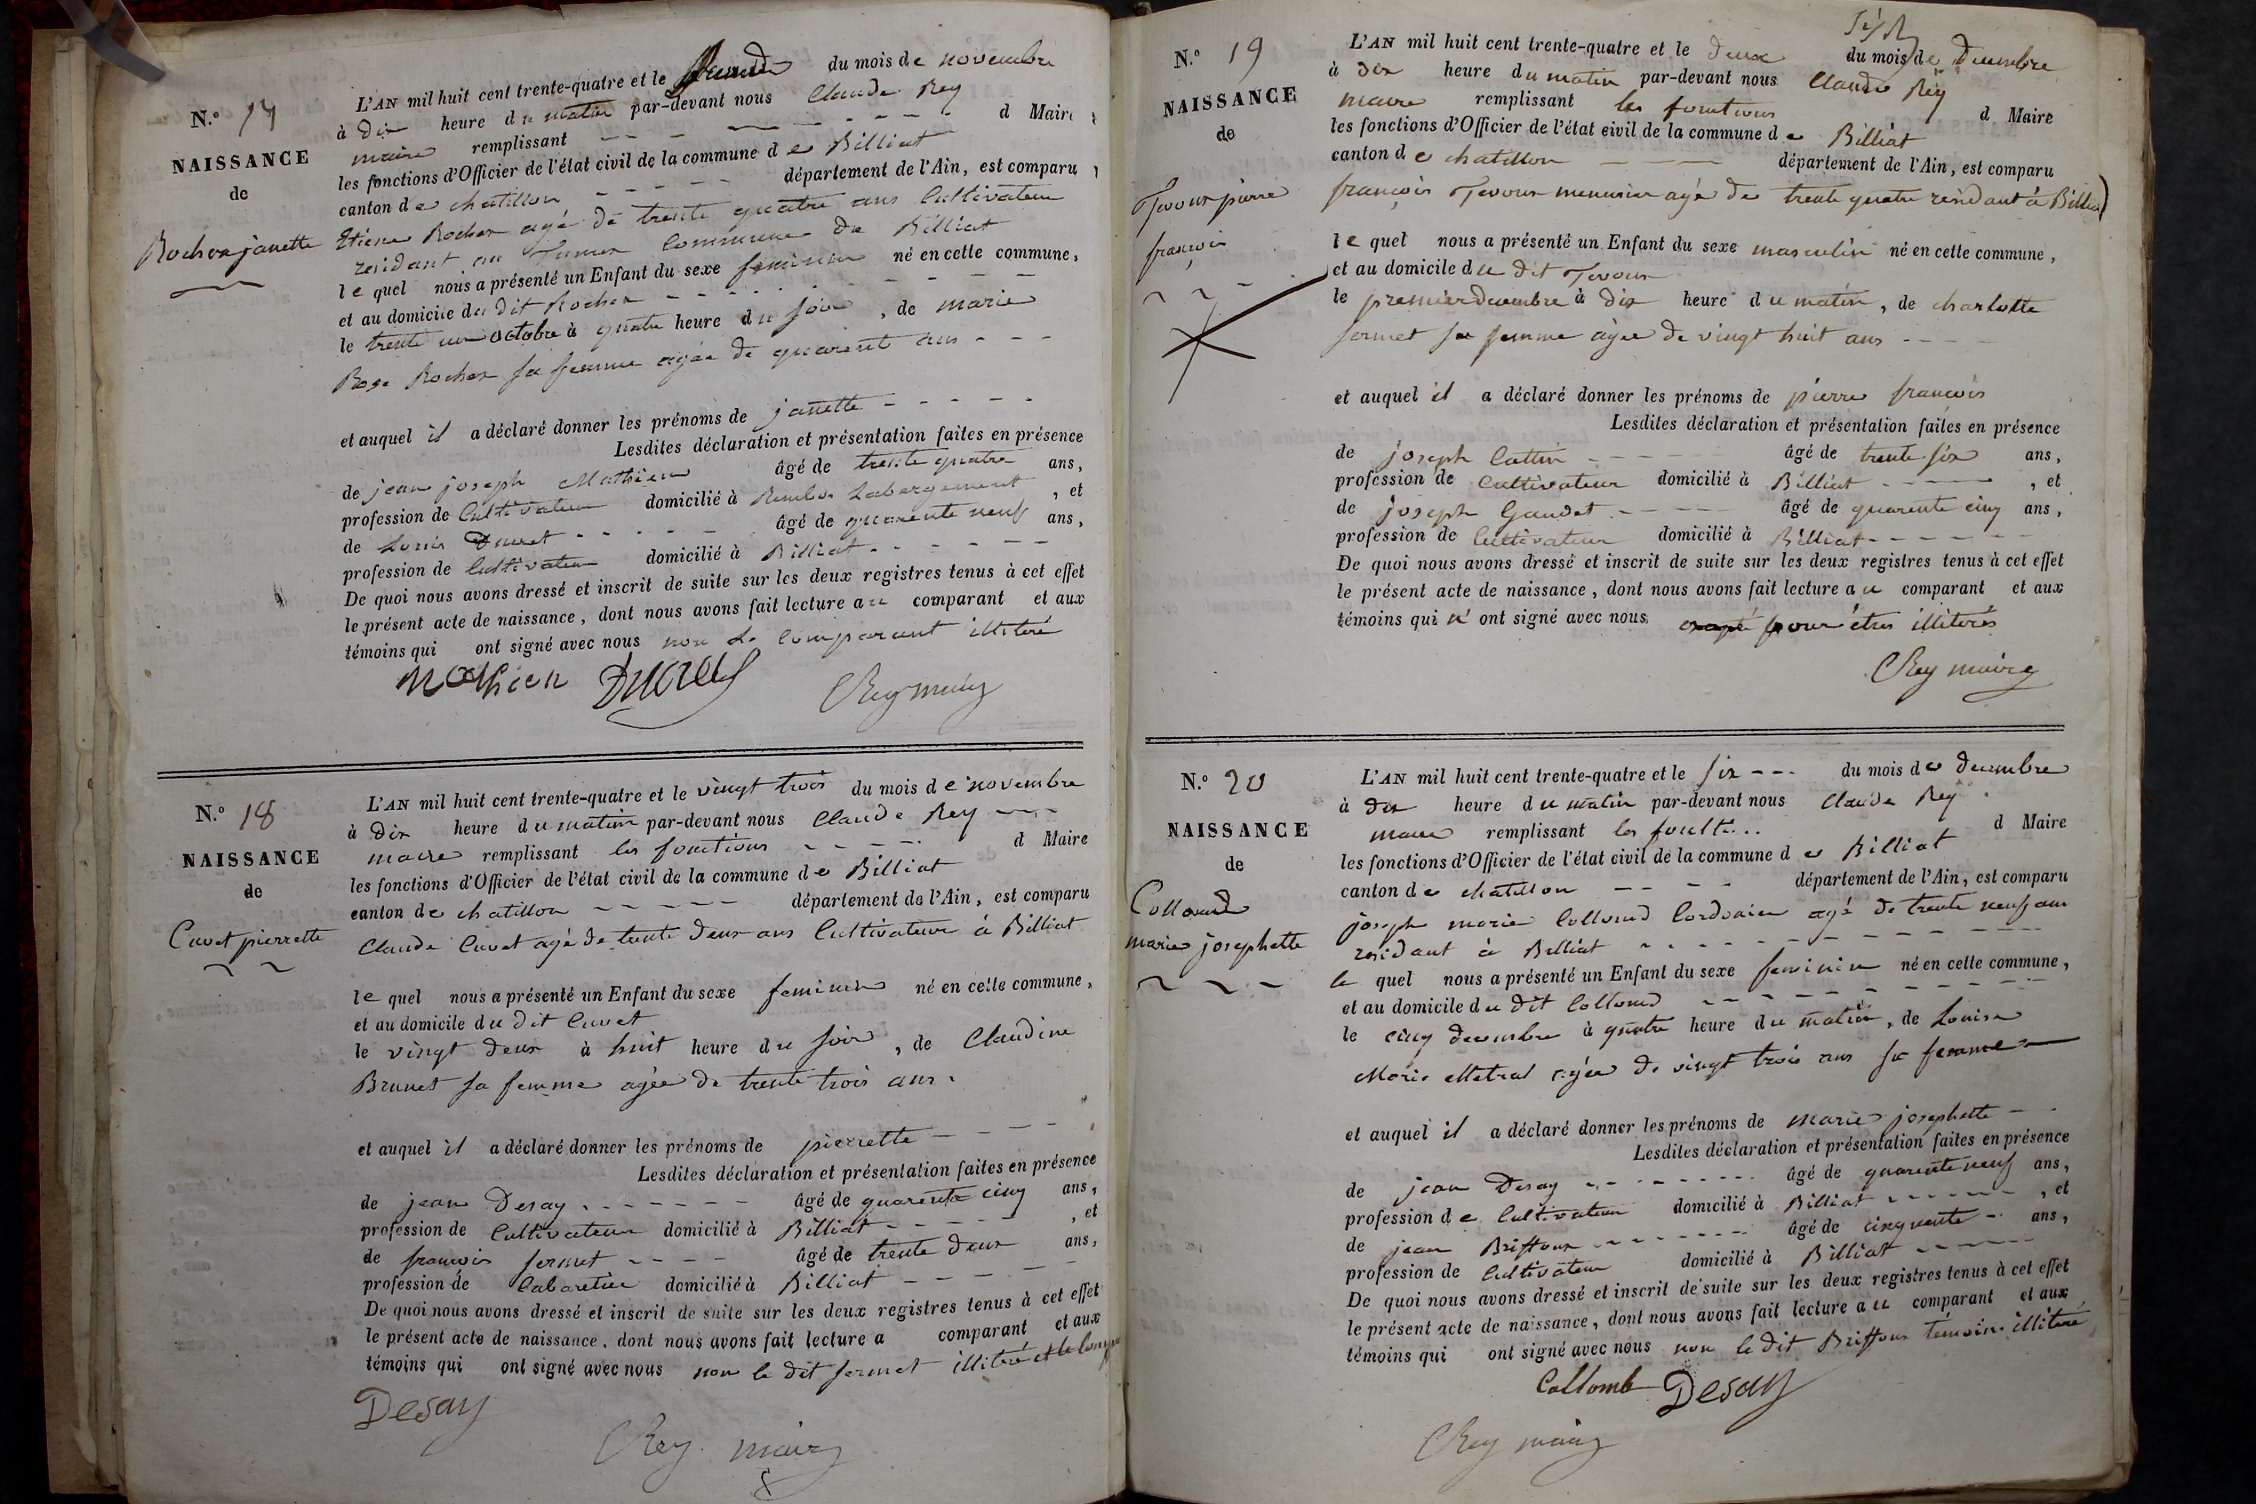 N.º 17
NAISSANCE
de
Rocher janette
L'AN mil huit cent trente-quatre et le du mois de novembre
à dix heure du matin par-devant nous Claude Rey
maire remplissant d Maire
les fonctions d'Officier de l'état civil de la commune de Billiat
canton de chatillon département de l'Ain, est comparu
Etiene Rocher agé de trente quatre ans Cultivateur
residant au commune de Billiat
le quel nous a présenté un Enfant du sexe feminin né en cette commune,
et au domicile du dit Rocher
le trente un octobre à quatre heure du soir, de marie
Rose Rocher sa femme agée de quarent ans
et auquel il a déclaré donner les prénoms de janette
Lesdites déclaration et présentation faites en présence
de jean joseph Mathieu âgé de trente quatre ans,
profession de Cultivateur domicilié à Labergement, et
de Louis Ducret âgé de quarente neuf ans,
profession de Cultivateur domicilié à Billiat
De quoi nous avons dressé et inscrit de suite sur les deux registres tenus à cet effet
le présent acte de naissance, dont nous avons fait lecture au comparant et aux
témoins qui ont signé avec nous non le comparant illiteré
Mathieu Ducret CRey maire
N.º 18
NAISSANCE
de
Cuvet pierrette
L'AN mil huit cent trente-quatre et le vingt trois du mois de novembre
à dix heure du matin par-devant nous Claude Rey
maire remplissant les fonctions d Maire
les fonctions d'Officier de l'état civil de la commune de Billiat
canton de chatillon département de l'Ain, est comparu
Claude Cuvet agé de trente deux ans Cultivateur à Billiat
le quel nous a présenté un Enfant du sexe feminin né en cette commune,
et au domicile du dit Cuvet
le vingt deux à huit heure du soir, de Claudine
Brunet sa femme agée de trente trois ans.
et auquel il a déclaré donner les prénoms de pierrette
Lesdites déclaration et présentation faites en présence
de jean Desay âgé de quarente cinq ans,
profession de Cultivateur domicilié à Billiat, et
de francois fermet âgé de trente deux ans,
profession de Cabaretier domicilié à Billiat
De quoi nous avons dressé et inscrit de suite sur les deux registres tenus à cet effet
le présent acte de naissance, dont nous avons fait lecture a comparant et aux
témoins qui ont signé avec nous non le dit fermet illiteré et le
Desay
CRey maire
N.º 19
NAISSANCE
de
Tavoux pierre
françois
L'AN mil huit cent trente-quatre et le deux du mois de decembre
à dix heure du matin par-devant nous Claude Rey
maire remplissant les fonctions d Maire
les fonctions d'Officier de l'état civil de la commune de Billiat
canton de chatillon département de l'Ain, est comparu
françois Tavoux menusier agé de trente quatre residant à Billiat
le quel nous a présenté un Enfant du sexe masculin né en cette commune,
et au domicile du dit Tavoux
le premier decembre à dix heure du matin, de charlotte
fermet sa femme agée de vingt huit ans
et auquel il a déclaré donner les prénoms de pierre francois
Lesdites déclaration et présentation faites en présence
de joseph Cattin âgé de trente six ans,
profession de Cultivateur domicilié à Billiat, et
de joseph Gaudet âgé de quarente cinq ans,
profession de Cultivateur domicilié à Billiat
De quoi nous avons dressé et inscrit de suite sur les deux registres tenus à cet effet
le présent acte de naissance, dont nous avons fait lecture au comparant et aux
témoins qui n'ont signé avec nous pour êtres illiterés
CRey maire
N.º 20
NAISSANCE
de
Collomd
marie josephette
L'AN mil huit cent trente-quatre et le six du mois de decembre
à dix heure du matin par-devant nous Claude Rey
maire remplissant les d Maire
les fonctions d'Officier de l'état civil de la commune de Billiat
canton de chatillon département de l'Ain, est comparu
joseph marie Collomd Cordonier agé de trente neuf ans
residant à Billiat
le quel nous a présenté un Enfant du sexe feminin né en cette commune,
et au domicile du dit Collomd
le cinq decembre à quatre heure du matin, de Louise
Marie Metral agée de vingt trois ans sa femme
et auquel il a déclaré donner les prénoms de marie josephette
Lesdites déclaration et présentation faites en présence
de jean Desay âgé de quarente neuf ans,
profession de Cultivateur domicilié à Billiat, et
de jean Briffoux âgé de cinquente ans,
profession de Cultivateur domicilié à Billiat
De quoi nous avons dressé et inscrit de suite sur les deux registres tenus à cet effet
le présent acte de naissance, dont nous avons fait lecture au comparant et aux
témoins qui ont signé avec nous non le dit Briffoux témoin illiteré
Collomb Desay
CRey maire